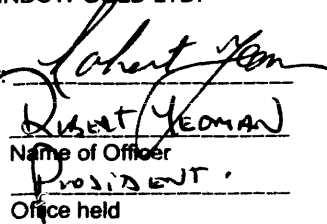 GOLD LTD.
Robert Yeoman
ROBERT YEOMAN
Name of Officer
PRESIDENT.
Office held